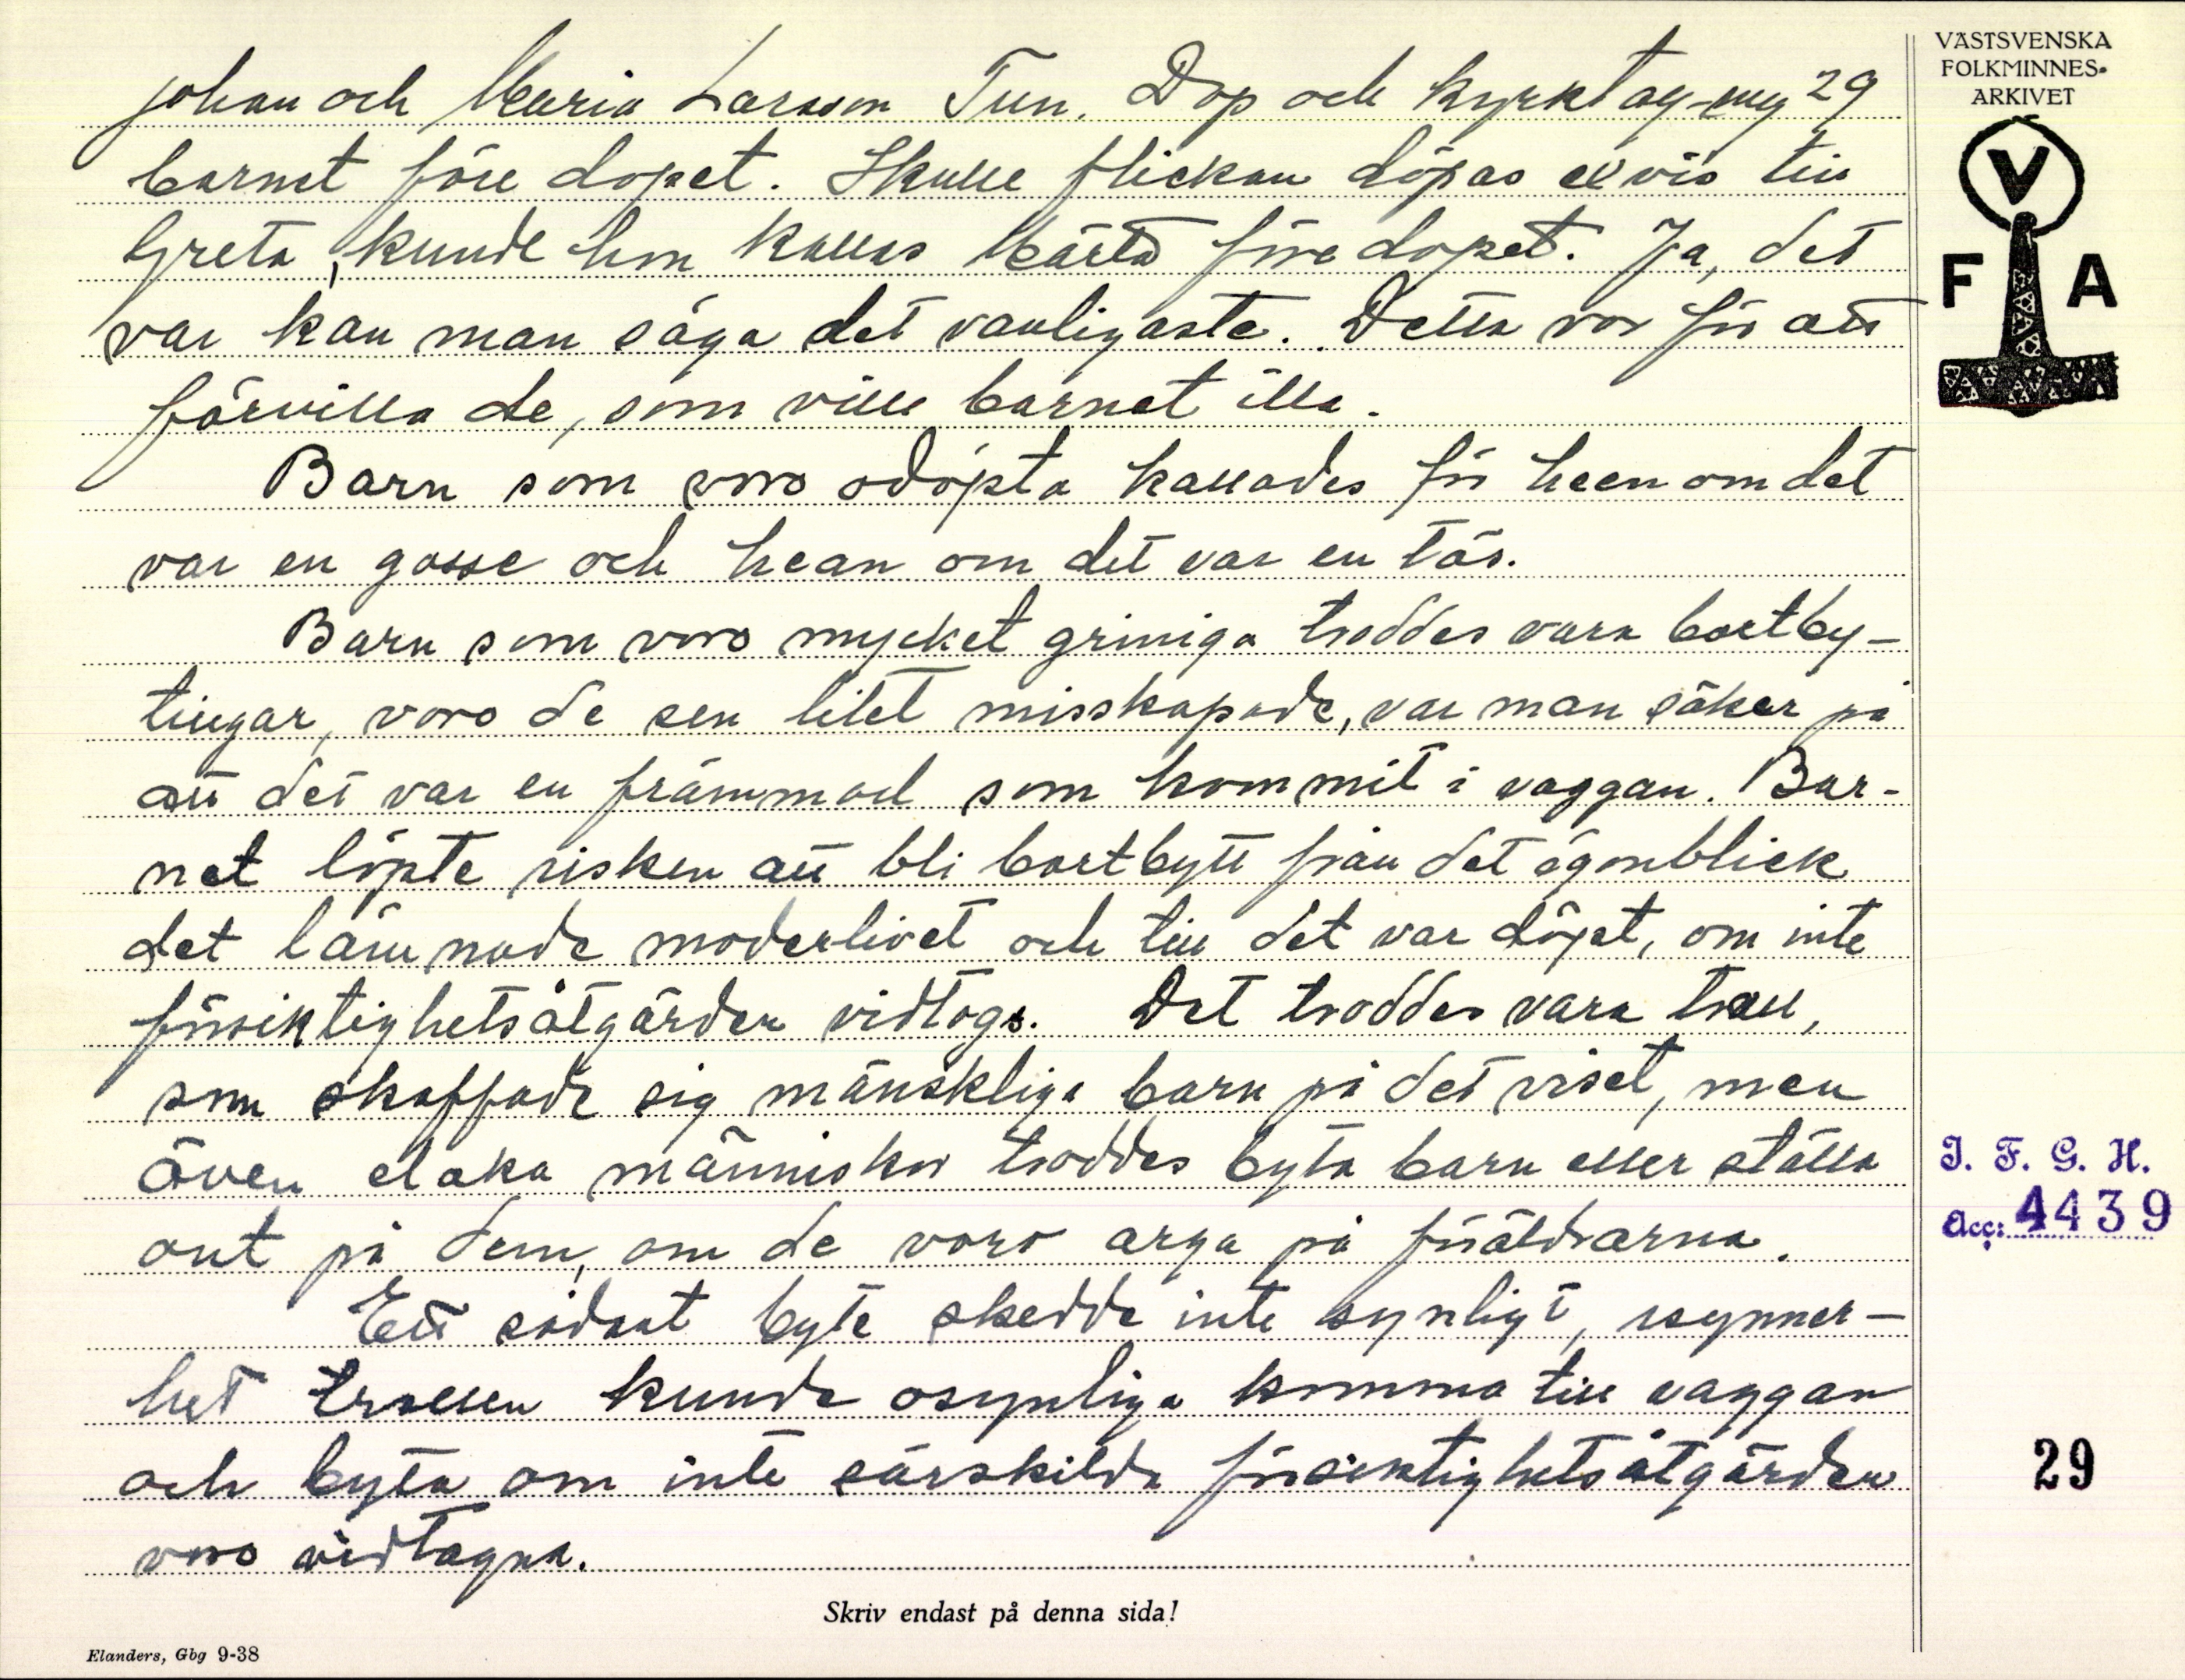 Johan och Maria Larsson Tun. Dop och kyrktag-ng 29
barnet före dopet. Skulle flickan döpas exvis till
Greta, kunde hon kallas Märta före dopet. Ja, det
var kan man säga det vanligaste. Detta var för att
förvilla de, som ville barnet illa.
Barn som voro odöpta kallades för heen om det
var en gosse och hean om det var en tös.
Barn som voro mycket griniga troddes vara bortby-
tingar, voro de sen litet misskapade, var man säker på
att det var en främmad som kommit i vaggan. Bar-
net löpte risken att bli bortbytt från det ögonblick
det lämnade moderlivet och till det var döpt, om inte
försiktighetsåtgärder vidtogs. Det troddes vara troll,
som skaffade sig mänskliga barn på det viset, men
även elaka människor troddes byta barn eller ställa
ont på dem, om de voro arga på föräldrarna.
Ett sådant byte skedde inte synligt, isynner-
het trollen kunde osynliga komma till vaggan
och byta om inte särskilda försiktighetsåtgärder
voro vidtagna.
Skriv endast på denna sida!
Elanders, Gbg 9-38
VÄSTSVENSKA
FOLKMINNES-
ARKIVET
V
F A
I. F. G. H.
Acc: 4439
29